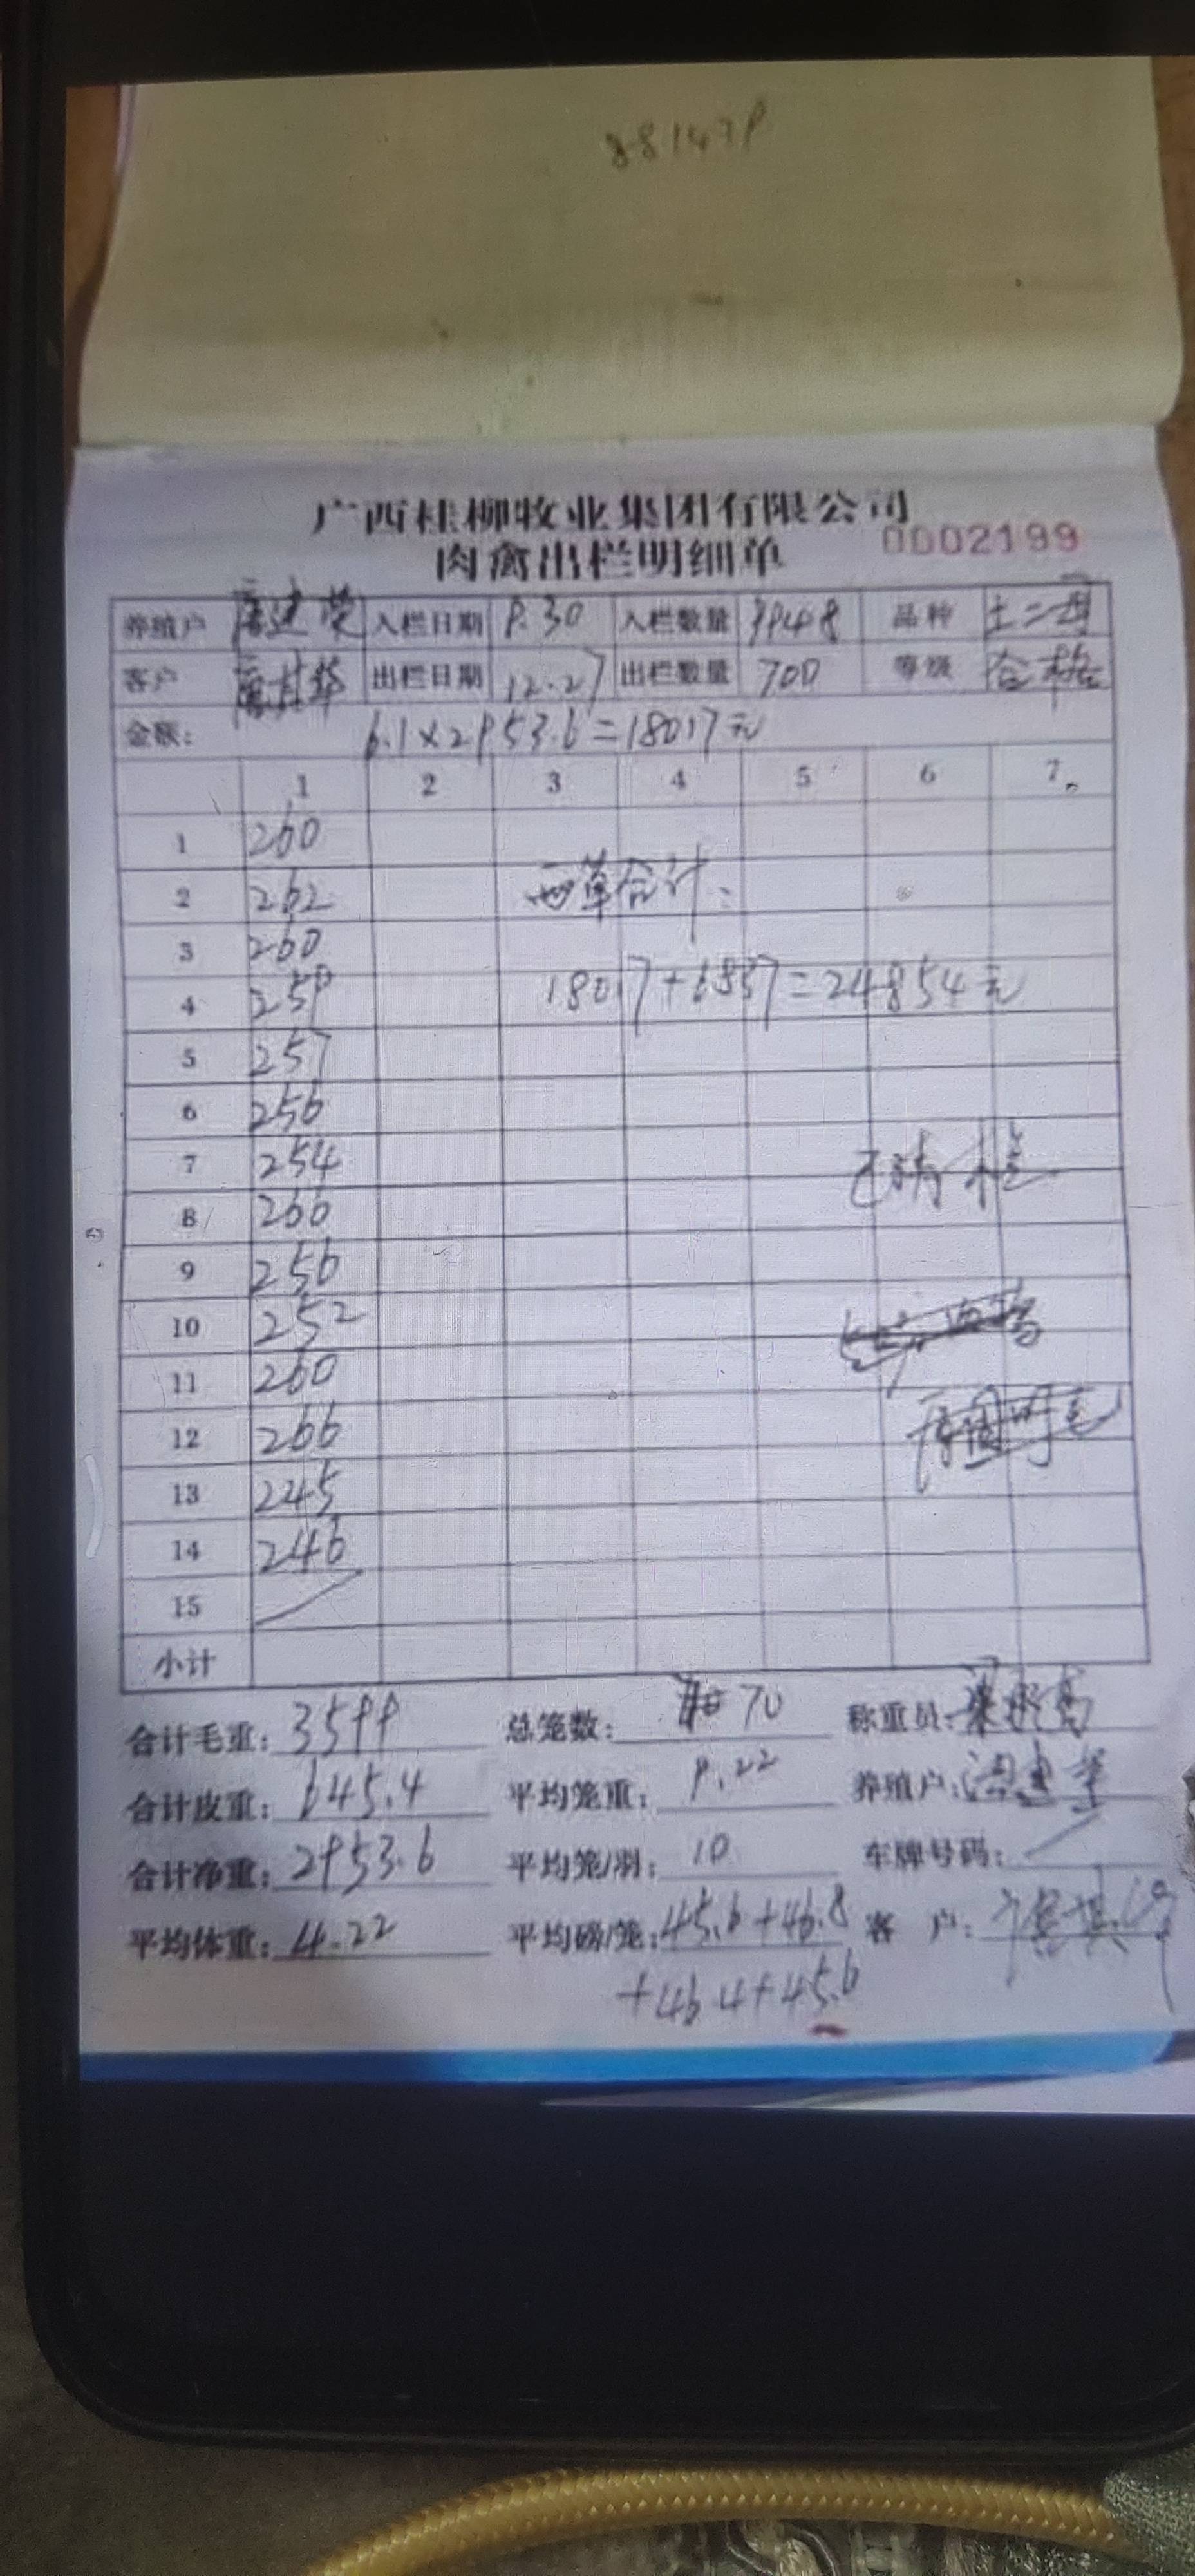 881479
广西桂柳牧业集团有限公司
肉禽出栏明细单 0002199
养殖户 入栏日期 9.30 入栏数量 3948 品种 土二
客户 出栏日期 12.27 出栏数量 700 等级 合格
金额: 6.1×2953.6=18017元
1 2 3 4 5 6 7
1 260
2 262 两单合计:
3 260
4 259 18017+6837=24854元
5 257
6 256
7 254
8 266
9 256
10 252
11 260
12 266
13 245
14 246
15
小计
合计毛重: 3599 总笼数: 70 称重员:
合计皮重: 645.4 平均笼重: 9.22 养殖户:
合计净重: 2953.6 平均笼/羽: 10 车牌号码:
平均体重: 4.22 平均磅/笼: 45.6+46.8 客 户:
+46.4+45.6